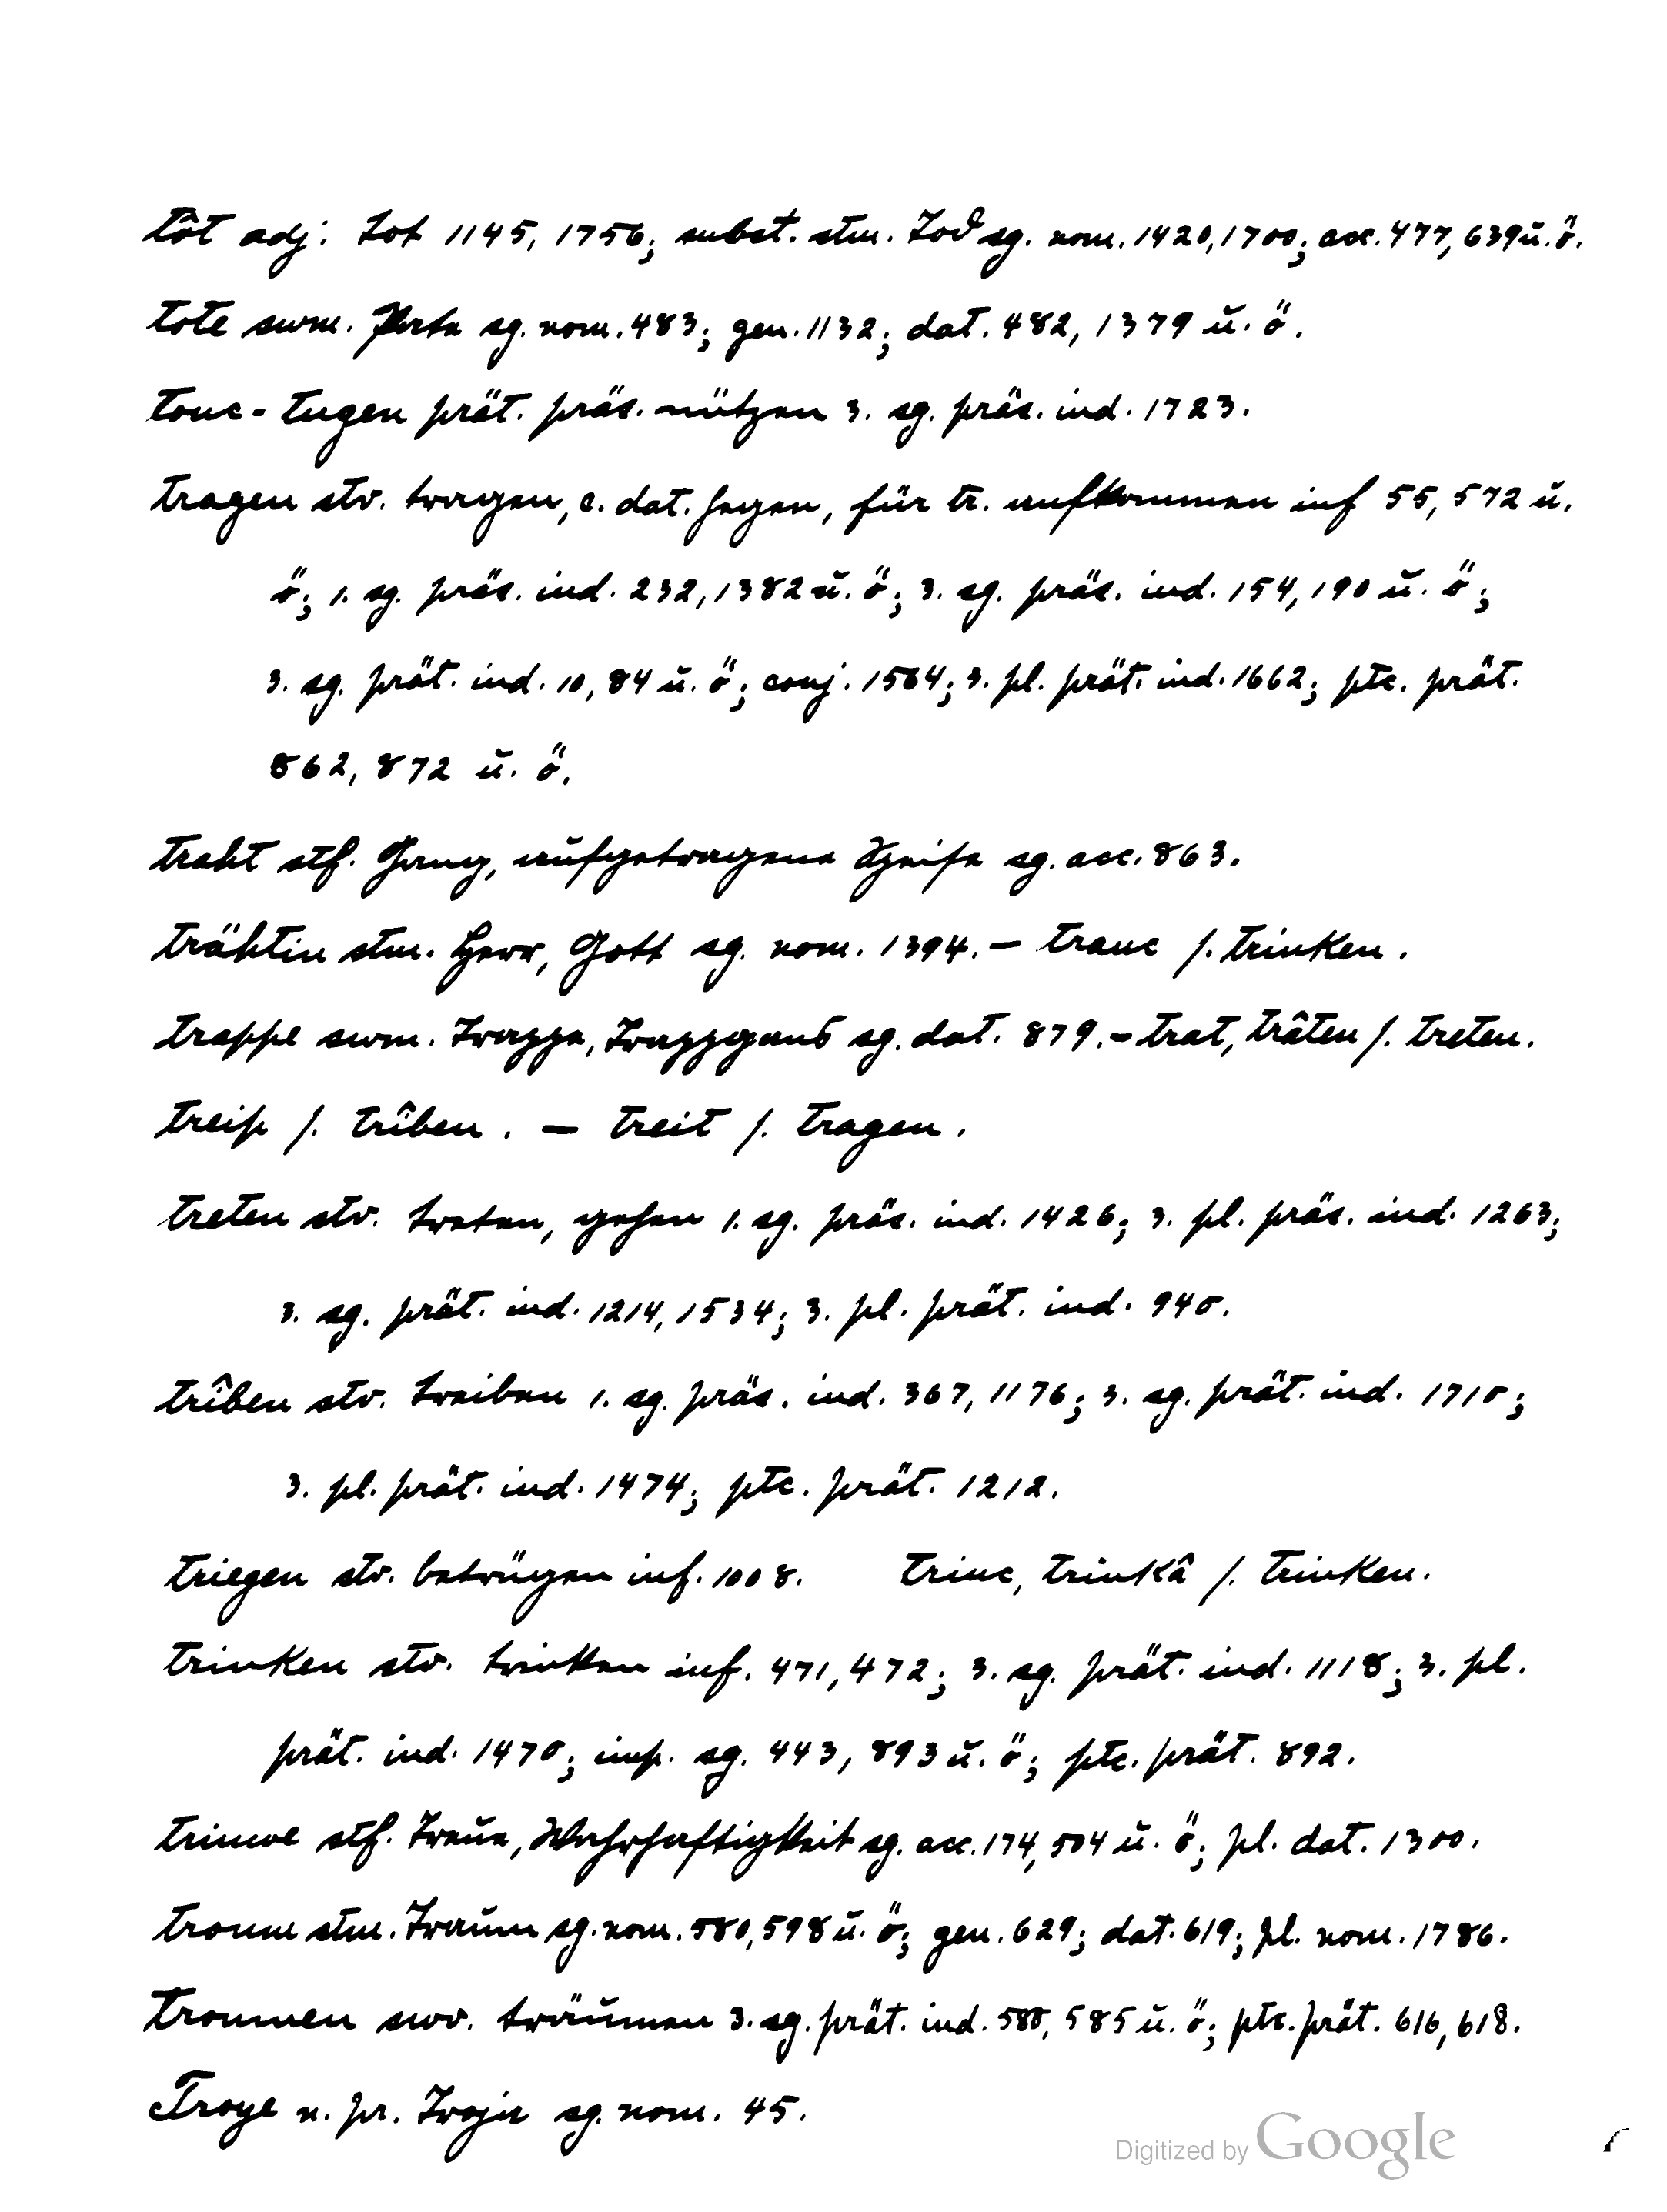 tôt adj. tot 1145, 1756; subst. stm. Tod sg. nom. 1420, 1700; acc. 477, 639 u. ö.
tote swm. Pate sg. nom. 483; gen. 1132; dat. 482, 1379 u. ö.
touc - tugen prät. präs. nützen 3. sg. präs. ind. 1723.
tragen stv. tragen, c. dat. hegen, für tr. aufkommen inf 55, 572 u.
ö; 1. sg. präs. ind. 232, 1382 u. ö; 3. sg. präs. ind. 154, 190 u. ö;
3. sg. prät. ind. 10, 84 u. ö; conj. 1564; 3. pl. prät. ind. 1662; ptc. prät.
862, 872 u. ö.
traht stf. Gang, aufgetragene Speise sg. acc. 863.
trähtin stm. Herr, Gott sg. nom. 1394. – tranc s. trinken.
trappe swm. Trappe, Trappgans sg. dat. 879. – trat, trâten s. treten.
treip s. trîben. – treit s. tragen.
treten stv. treten, gehen 1. sg. präs. ind. 1426; 3. pl. präs. ind. 1263;
3. sg. prät. ind. 1214, 1534; 3. pl. prät. ind. 940.
trîben stv. treiben 1. sg. präs. ind. 367, 1176; 3. sg. prät. ind. 1710;
3. pl. prät. ind. 1474; ptc. prät. 1212.
triegen stv. betrügen inf. 1008. trinc, trinkâ s. trinken.
trinken stv. trinken inf. 471, 472; 3. sg. prät. ind. 1118; 3. pl.
prät. ind. 1470; imp. sg. 443, 893 u. ö; ptc. prät. 892.
triuwe stf. Treue, Wahrhaftigkeit sg. acc. 174, 504 u. ö; pl. dat. 1300.
troum stm. Traum sg. nom. 580, 598 u. ö; gen. 629; dat. 619; pl. nom. 1786.
troumen swv. träumen 3. sg. prät. ind. 580, 585 u. ö; ptc. prät. 616, 618.
Troye n. pr. Troja sg. nom. 45.
Digitized by Google